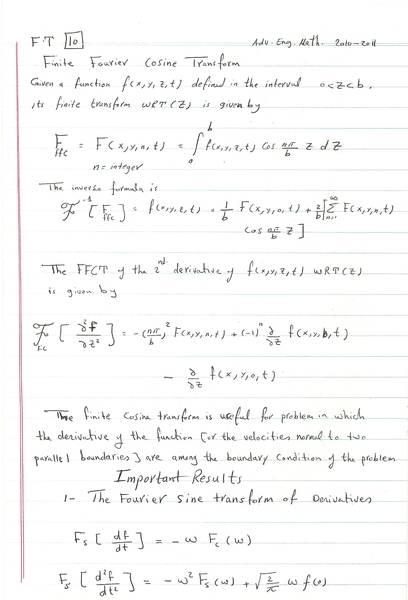 FT 10 Adv. Eng. Math. 2010-2011
Finite Fourier Cosine Transform
Given a function f(x,y,z,t) defined in the interval 0<z<b,
its finite transform WRT(Z) is given by
F_ffc = F(x,y,n,t) = ∫_0^b f(x,y,z,t) Cos nπ/b z dz
n = integer
The inverse formula is
ℱ^-1 [F_ffc] = f(x,y,z,t) = 1/b F(x,y,0,t) + 2/b [∑_{n=1}^∞ F(x,y,n,t)
Cos nπ/b z]
The FFCT of the 2nd derivative of f(x,y,z,t) WRT(z)
is given by
ℱ_FC [∂²f/∂z²] = -(nπ/b)² F(x,y,n,t) + (-1)^n ∂/∂z f(x,y,b,t)
- ∂/∂z f(x,y,0,t)
The finite cosine transform is useful for problem in which
the derivative of the function [or the velocities normal to two
parallel boundaries] are among the boundary condition of the problem
Important Results
1- The Fourier sine transform of Derivatives
F_s [df/dt] = -ω F_c(ω)
F_s [d²f/dt²] = -ω² F_s(ω) + √(2/π) ω f(0)